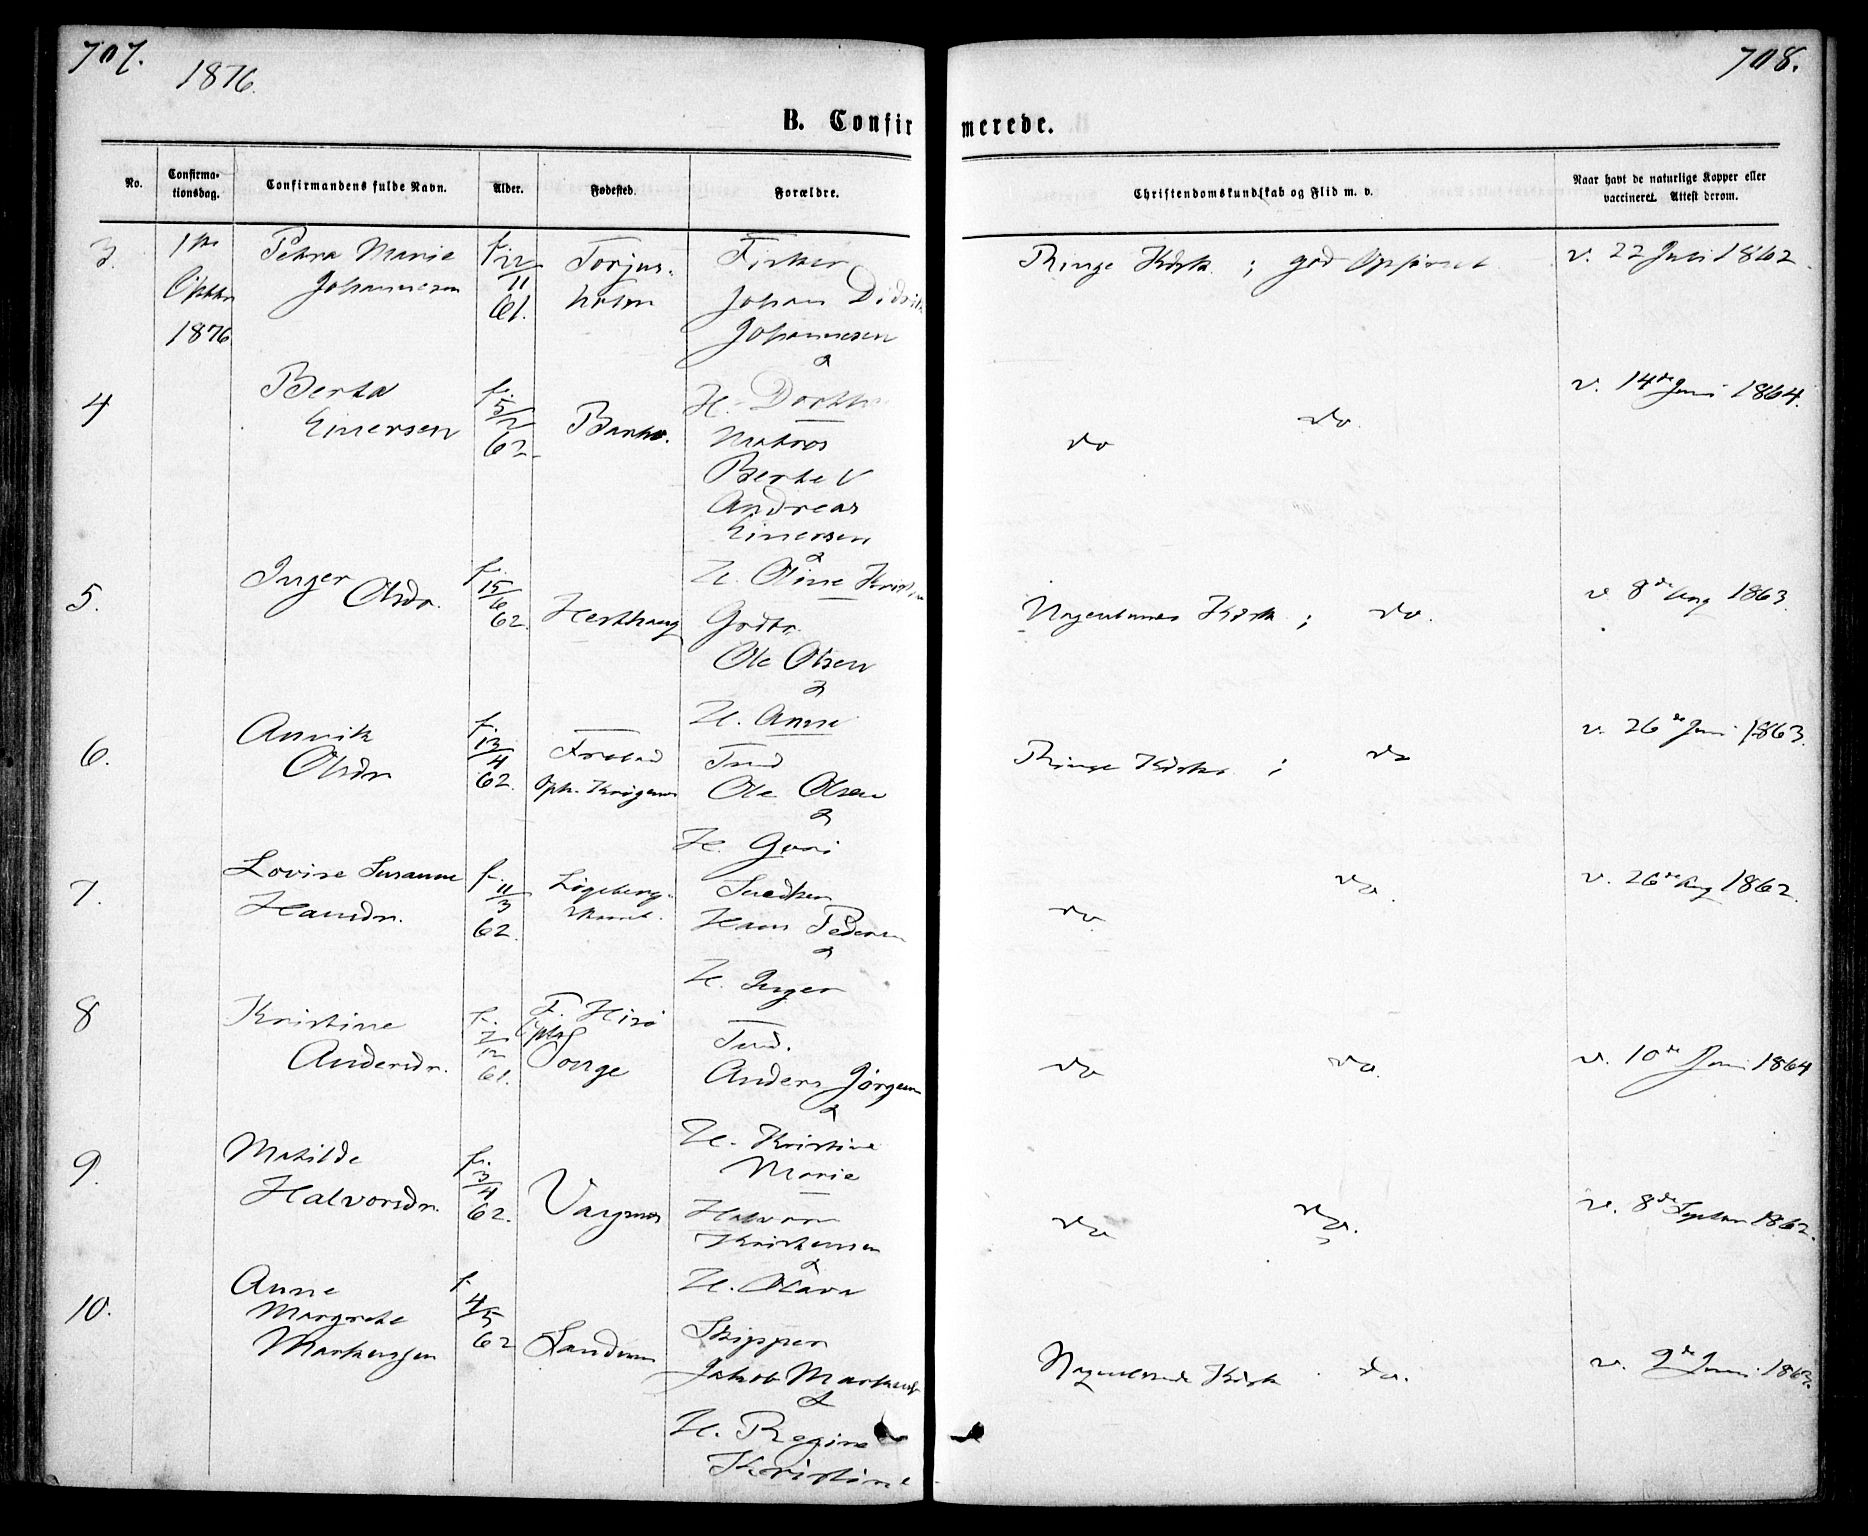 707.
1876.
708.
B. Confirmerede.
No.
Confirma-
tionsdag.
Confirmandens fulde Navn.
Alder.
Fødested.
Forældre.
Christendomskundskab og Flid m. v.
Naar havt de naturlige Kopper eller
vaccineret. Attest derom.
3.
1
1876
Petra Marie
Johannesen
f. 22/11
61.
Torjus-
holm
Fisker
Johan
Johannesen
&
H.
Ringe Kdsk. ; god Opførsel
v. 22 Juli 1862.
4
Berta
Einersen
f. 5/2
62.
Matros
Bertel
Andreas
Einersen
&
H. Oline
do
do.
v. 14de Juni 1864.
5.
Inger
Olsdr.
f. 15/6
62.
Ole Olsen
&
H. Anne
Kdsk. ; do.
v. 8de Aug 1863.
6.
Annik
Olsdr
f. 13/4
62.
Ole Olsen
&
H. Guri
Ringe Kdsk. ; do
v. 26de Juni 1863.
7.
Lovise Susanne
Hansdr.
f. 11/3
62.
Snedker
Hans Pedersen
&
H. Inger
do.
do.
v. 26de Aug 1862.
8
Kristine
Andersdr.
f. 7/12
61.
F. Hisø
Songe
Anders Jørgensen
&
H. Kristine
Marie
do
do.
v. 10de Juni 1864
9.
Matilde
Halvorsdr.
f. 3/4
62.
Halvor
Kristensen
&
H. Olava
do
do.
v. 8de Septbr 1862.
10.
Anne
Margrete
Markussen
f. 4/5
62
Skipper
Jakob
&
H. Regine
Kristine
Kdsk. do.
v. 2de Juni 1863.